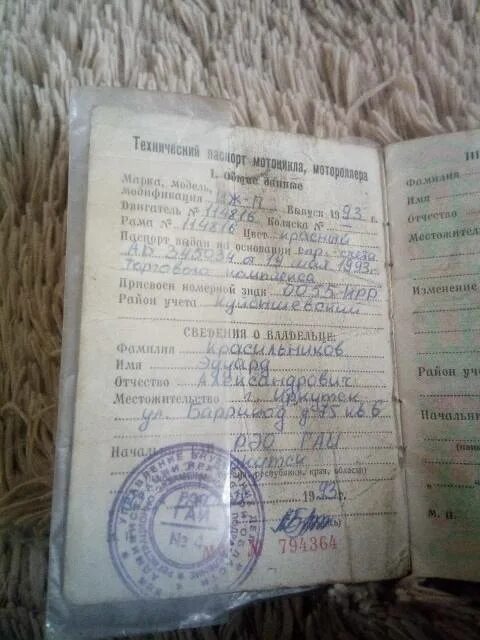 Технический паспорт мотоцикла, мотороллера
1. Общие данные
Марка, модель,
модификация ИЖ-П Выпуск 1993 г.
Двигатель № 114816 Коляска №
Рама № 114816 Цвет красный
Паспорт выдан на основании спр. счета
АБ 545034 от 14 мая 1993г
торгового комплекса
Присвоен номерной знак 0055 ИРР
Район учета Куйбышевский
СВЕДЕНИЯ О ВЛАДЕЛЬЦЕ:
Фамилия Красильников
Имя Эдуард
Отчество Александрович
Местожительство г. Иркутск
ул. Баррикад д 75 кв. 6
Начальник РЭО ГАИ
(республики, края, области)
1993г.
УПРАВЛЕНИЕ
РЭО
ГАИ
№
№ 794364
Фамилия
Имя
Отчество
Местожительство
Изменение
Район учета
Начальник
М. П.